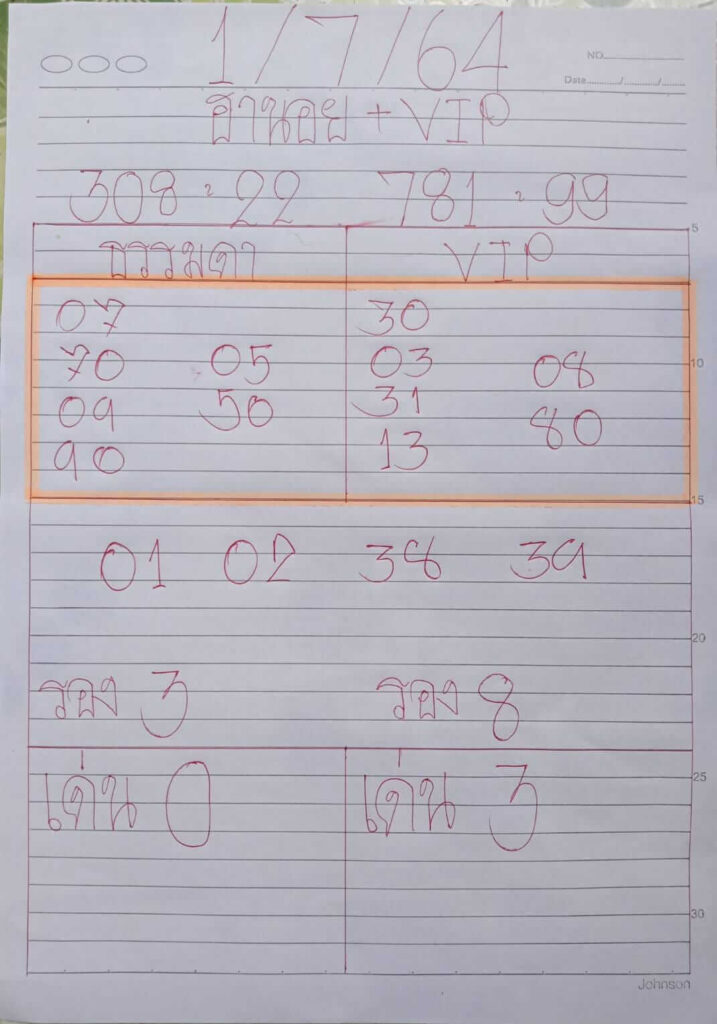 1/7/64
NO.
Date / /
ฮานอย + VIP
308 = 22 781 = 99
5
ธรรมดา VIP
07 30
70 05 03 08
10
09 50 31 80
90 13
15
01 02 38 39
20
รอง 3 รอง 8
25
เด่น 0 เด่น 3
30
Johnson